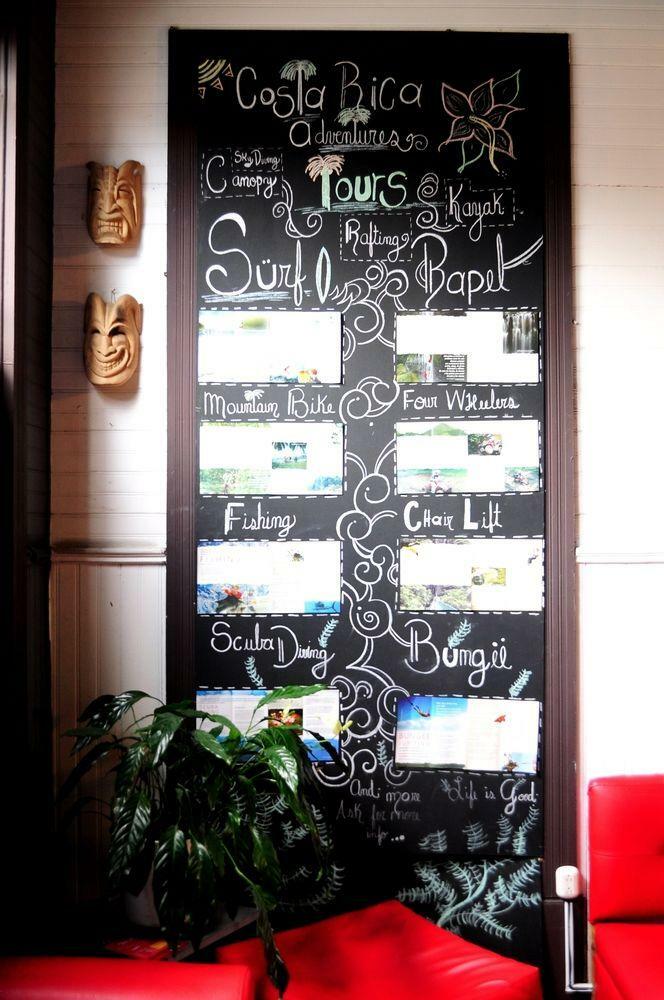 Costa Rica
adventures
Sky Diving
Canopy
Tours
Kayak
Rafting
Sürf
Rapel
Mountain Bike
Four Wheelers
Fishing
Chair Lift
FISHING
Scuba Diving
Büngii
And more
Ask for more
info...
Life is Good